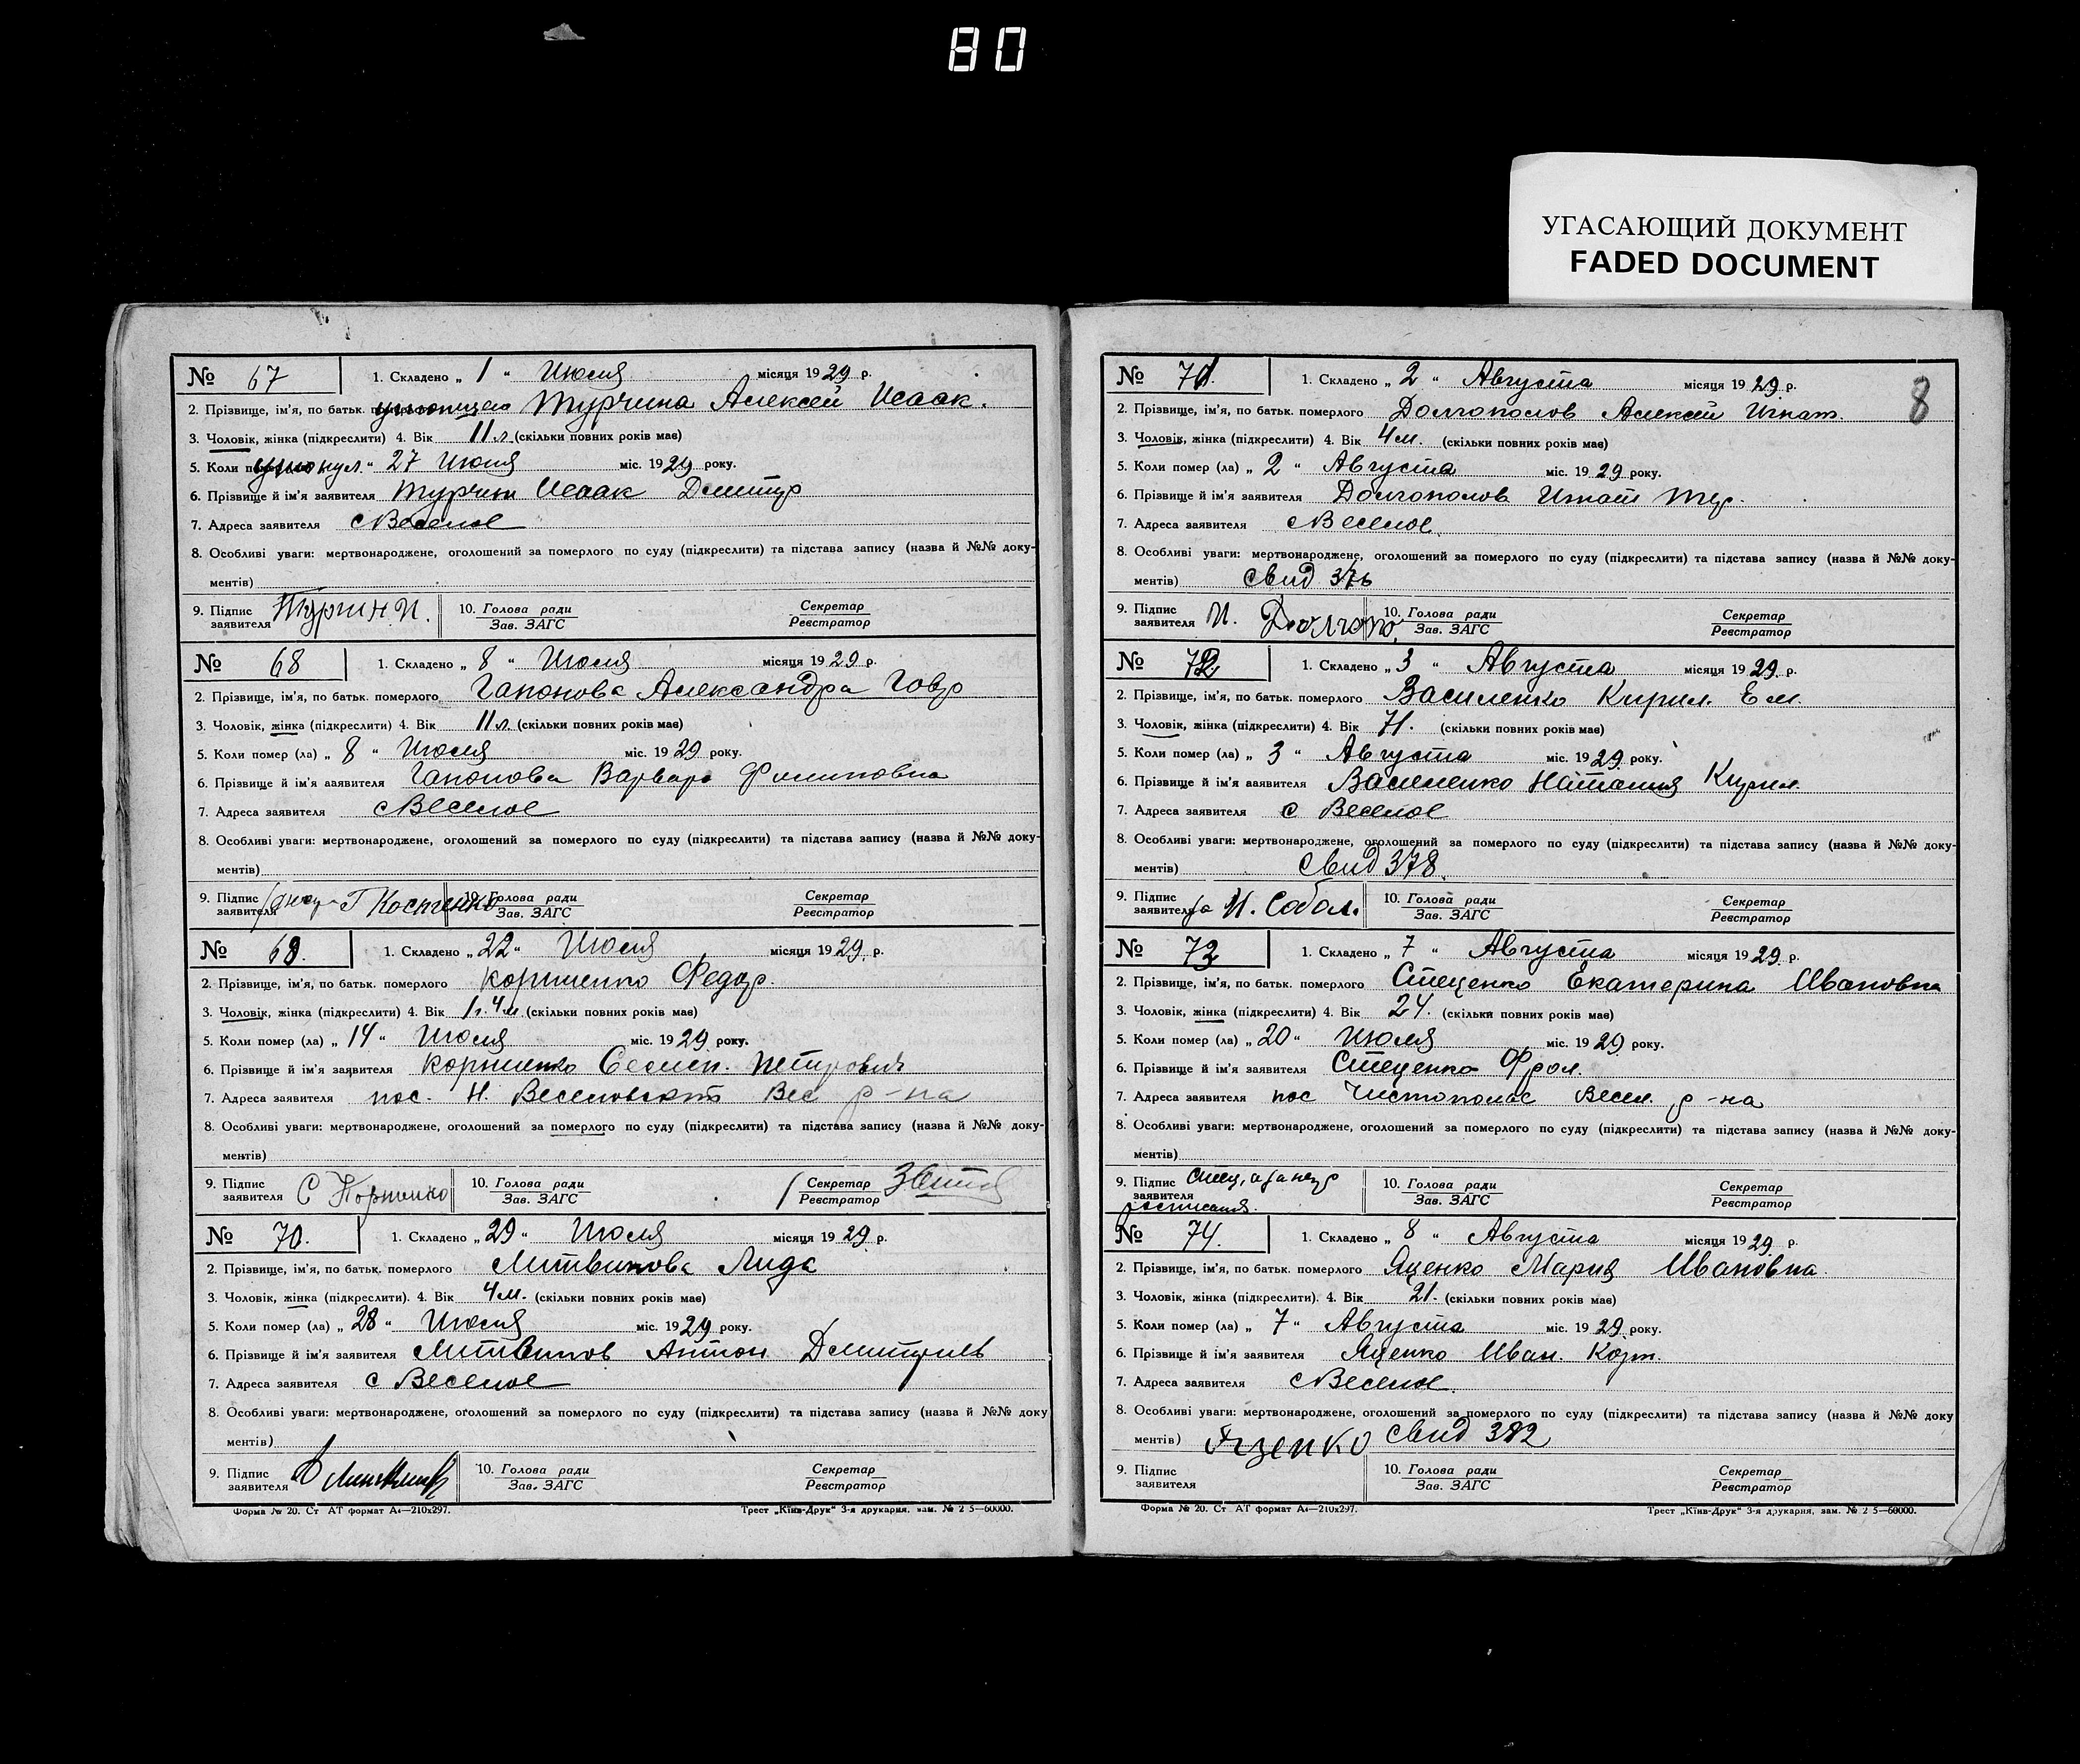 80
УГАСАЮЩИЙ ДОКУМЕНТ
FADED DOCUMENT
№ 67
1. Складено „ 1 “ Июля місяця 1929 р.
2. Прізвище, ім'я, по батьк. Турчина Алексей Исаак.
3. Чоловік, жінка (підкреслити) 4. Вік 11 л. (скільки повних років має)
5. Коли “ 27 Июля міс. 1929 року.
6. Прізвище й ім'я заявителя Турчин Исаак Дмитр
7. Адреса заявителя с Веселое
8. Особливі уваги: мертвонароджене, оголошений за померлого по суду (підкреслити) та підстава запису (назва й №№ доку-
ментів)
9. Підпис заявителя Турчин И.
10. Голова ради Зав. ЗАГС
Секретар Реєстратор
№ 68
1. Складено „ 8 “ Июля місяця 1929 р.
2. Прізвище, ім'я, по батьк. померлого Гапонова Александра
3. Чоловік, жінка (підкреслити) 4. Вік 11 л. (скільки повних років має)
5. Коли помер (ла) „ 8 “ Июля міс. 1929 року.
6. Прізвище й ім'я заявителя Гапонова Варвара Филиповна
7. Адреса заявителя с Веселое
8. Особливі уваги: мертвонароджене, оголошений за померлого по суду (підкреслити) та підстава запису (назва й №№ доку-
ментів)
9. Підпис заявителя Г Костенко
10. Голова ради Зав. ЗАГС
Секретар Реєстратор
№ 69.
1. Складено „ 22 “ Июля місяця 1929 р.
2. Прізвище, ім'я, по батьк. померлого Федор.
3. Чоловік, жінка (підкреслити) 4. Вік 1 г. 4 м. (скільки повних років має)
5. Коли помер (ла) „ 14 “ Июля міс. 1929 року.
6. Прізвище й ім'я заявителя Семен. Петрович
7. Адреса заявителя пос. Н. Вес р-на
8. Особливі уваги: мертвонароджене, оголошений за померлого по суду (підкреслити) та підстава запису (назва й №№ доку-
ментів)
9. Підпис заявителя С
10. Голова ради Зав. ЗАГС
Секретар Реєстратор
№ 70.
1. Складено „ 29 “ Июля місяця 1929 р.
2. Прізвище, ім'я, по батьк. померлого Литвинова Лида
3. Чоловік, жінка (підкреслити). 4. Вік 4 м. (скільки повних років має)
5. Коли помер (ла) „ 28 “ Июля міс. 1929 року.
6. Прізвище й ім'я заявителя Литвинов Антон Дмитриев
7. Адреса заявителя с Веселое
8. Особливі уваги: мертвонароджене, оголошений за померлого по суду (підкреслити) та підстава запису (назва й №№ доку
ментів)
9. Підпис заявителя
10. Голова ради Зав. ЗАГС
Секретар Реєстратор
Форма № 20. Ст АТ формат А4—210х297.
Трест „Київ-Друк“ 3-я друкарня, зам. № 2 5—60000.
8
№ 71.
1. Складено „ 2 “ Августа місяця 1929 р.
2. Прізвище, ім'я, по батьк. померлого Долгополов Алексей Игнат.
3. Чоловік, жінка (підкреслити) 4. Вік 4 м. (скільки повних років має)
5. Коли помер (ла) „ 2 “ Августа міс. 1929 року.
6. Прізвище й ім'я заявителя Долгополова
7. Адреса заявителя с Веселое
8. Особливі уваги: мертвонароджене, оголошений за померлого по суду (підкреслити) та підстава запису (назва й №№ доку-
ментів) свид 376
9. Підпис заявителя И. Долгопо
10. Голова ради Зав. ЗАГС
Секретар Реєстратор
№ 72
1. Складено „ 3 “ Августа місяця 1929 р.
2. Прізвище, ім'я, по батьк. померлого Василенко Кирил. Ем.
3. Чоловік, жінка (підкреслити) 4. Вік 71. (скільки повних років має)
5. Коли помер (ла) „ 3 “ Августа міс. 1929 року.
6. Прізвище й ім'я заявителя Василенко Наталия Кирил.
7. Адреса заявителя с Веселое
8. Особливі уваги: мертвонароджене, оголошений за померлого по суду (підкреслити) та підстава запису (назва й №№ доку-
ментів) свид 378.
9. Підпис заявителя за И. Собол.
10. Голова ради Зав. ЗАГС
Секретар Реєстратор
№ 73
1. Складено „ 7 “ Августа місяця 1929 р.
2. Прізвище, ім'я, по батьк. померлого Стеценко Екатерина Ивановна
3. Чоловік, жінка (підкреслити) 4. Вік 24. (скільки повних років має)
5. Коли помер (ла) „ 20 “ Июля міс. 1929 року.
6. Прізвище й ім'я заявителя Стеценко Фрол.
7. Адреса заявителя пос Чистополье Весел. р-на
8. Особливі уваги: мертвонароджене, оголошений за померлого по суду (підкреслити) та підстава запису (назва й №№ доку-
ментів)
9. Підпис заявителя
10. Голова ради Зав. ЗАГС
Секретар Реєстратор
№ 74.
1. Складено „ 8 “ Августа місяця 1929 р.
2. Прізвище, ім'я, по батьк. померлого Яценко Мария Ивановна.
3. Чоловік, жінка (підкреслити). 4. Вік 21. (скільки повних років має)
5. Коли помер (ла) „ 7 “ Августа міс. 1929 року.
6. Прізвище й ім'я заявителя Яценко Иван. Корн.
7. Адреса заявителя с Веселое.
8. Особливі уваги: мертвонароджене, оголошений за померлого по суду (підкреслити) та підстава запису (назва й №№ доку
ментів) Яценко свид 382
9. Підпис заявителя
10. Голова ради Зав. ЗАГС
Секретар Реєстратор
Форма № 20. Ст АТ формат А4—210х297.
Трест „Київ-Друк“ 3-я друкарня, зам. № 2 5—60000.